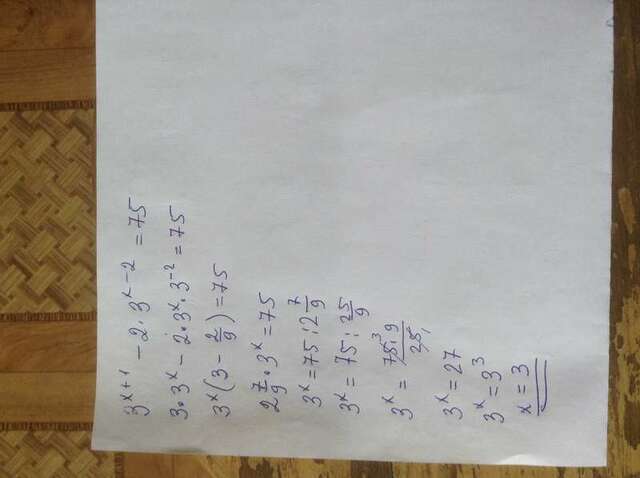 3^{x+1} - 2 · 3^{x-2} = 75
3 · 3^x - 2 · 3^x · 3^{-2} = 75
3^x (3 - 2/9) = 75
2 7/9 · 3^x = 75
3^x = 75 : 2 7/9
3^x = 75 : 25/9
3^x = 75^3 · 9 / 25_1
3^x = 27
3^x = 3^3
x = 3